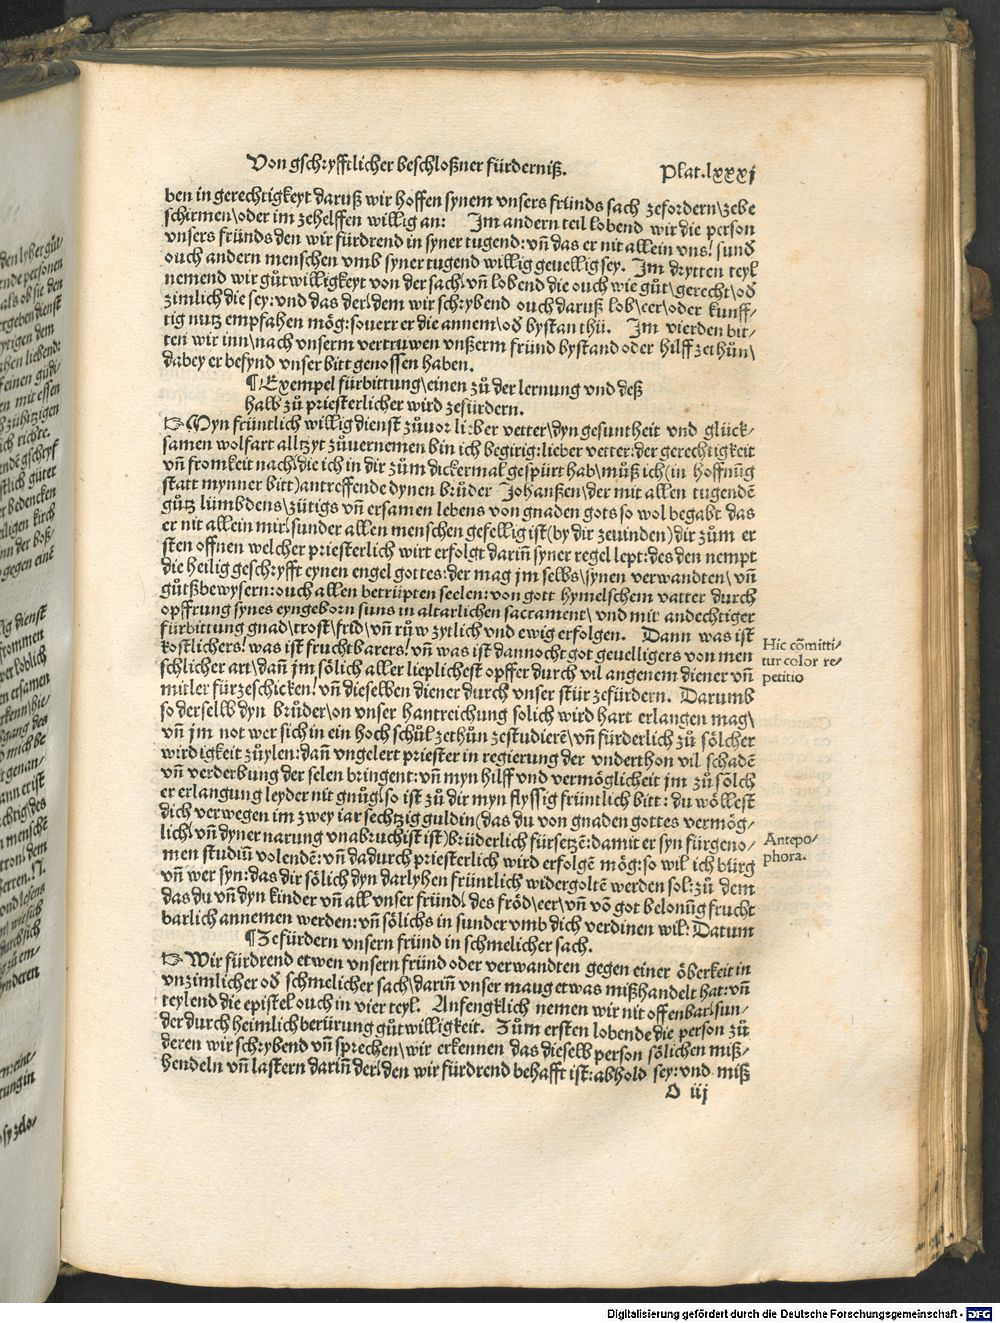 Von gschryfftlicher beschloßner fürderniß. Plat. lxxxj
ben in gerechtigkeyt daruß wir hoffen synem vnsers fründs sach zefordern\zebe
schirmen\oder im zehelffen willig an: Im andern teil lobend wir die person
vnsers fründs den wir fürdrend in syner tugend: vñ das er nit allein vns/ sund
ouch andern menschen vmb syner tugend willig geuellig sey. Im drytten teyl
nemend wir gůtwilligkeyt von der sach\ vñ lobend die ouch wie gůt\gerecht\oď
zimlich die sey: vnd das der\ dem wir schrybend ouch daruß lob\eer\oder kunff⸗
tig nutz empfahen mög: souerr er die annem\oď bystan thü. Im vierden bit⸗
ten wir inn\nach vnserm vertruwen vnßerm fründ bystand oder hilff zethůn\
dabey er befynd vnser bitt genossen haben.
¶Exempel fürbittung\einen zů der lernung vnd deß
halb zů priesterlicher wird zefürdern.
☞Myn früntlich willig dienst zůuor lieber vetter\dyn gesuntheit vnd glück⸗
samen wolfart alltzyt zůuernemen bin ich begirig: lieber vetter: der gerechtigkeit
vñ fromkeit nach\ die ich in dir zům dickermal gespürt hab\můß ich (in hoffnũg
statt mynner bitt) antreffende dynen brůder Johanßen\der mit allen tugendẽ
gůtz lümbdens\zütigs vñ ersamen lebens von gnaden gots so wol begabt das
er nit allein mir\ sunder allen menschen gefellig ist (by dir zeuinden) dir zům er
sten offnen welcher priesterlich wirt erfolgt dariñ syner regel lept: des den nempt
die heilig geschryfft eynen engel gottes: der mag jm selbs\synen verwandten\ vñ
gůtßbewysern: ouch allen betrüpten seelen: von gott hymelschem vatter durch
opffrung synes eyngeborn suns in altarlichen sacrament\ vnd mit andechtiger
fürbittung gnad\trost\frid\vñ růw zytlich vnd ewig erfolgen. Dann was ist
kostlichers/ was ist fruchtbarers/ vñ was ist dannocht got geuelligers von men
schlicher art\dañ jm sölich aller lieplichest opffer durch vil angenem diener vñ
mitler fürzeschicken/ vñ dieselben diener durch vnser stür zefürdern. Darumb
so derselb dyn brůder\on vnser hantreichung solich wird hart erlangen mag\
vñ jm not wer sich in ein hoch schůl zethůn zestudierẽ\vñ fürderlich zů sölcher
wirdigkeit zůylen: dañ vngelert priester in regierung der vnderthon vil schadẽ
vñ verderbung der selen bringent: vñ myn hilff vnd vermöglicheit jm zů sölch
er erlangung leyder nit gnůg\ so ist zů dir myn flyssig früntlich bitt: du wöllest
dich verwegen im zwey iar sechtzig guldin (das du von gnaden gottes vermög⸗
lich\ vñ dyner narung vnabruchist ist) brůderlich fürsetzẽ: damit er syn fürgeno⸗
men studiũ volendẽ: vñ dadurch priesterlich wird erfolgẽ mög: so wil ich bürg
vñ wer syn: das dir sölich dyn darlyhen früntlich widergoltẽ werden sol: zů dem
das du vñ dyn kinder vñ all vnser fründ\ des fröd\eer\vñ võ got belonũg frucht
barlich annemen werden: vñ sölichs in sunder vmb dich verdinen wil: Datum
¶Zefürdern vnsern fründ in schmelicher sach.
☞Wir fürdrend etwen vnsern fründ oder verwandten gegen einer öberkeit in
vnzimlicher oď schmelicher sach\dariñ vnser maug etwas mißhandelt hat: vñ
teylend die epistel ouch in vier teyl. Anfengklich nemen wir nit offenbar\ sun⸗
der durch heimlich berürung gůtwilligkeit. Zům ersten lobende die person zů
deren wir schrybend vñ sprechen\wir erkennen das dieselb person sölichen miß⸗
hendeln vñ lastern dariñ der\ den wir fürdrend behafft ist: abhold sey: vnd miß
O iij
Hic cõmitti⸗
tur color re⸗
petitio
Antepo⸗
phora.
Digitalisierung gefördert durch die Deutsche Forschungsgemeinschaft - DFG